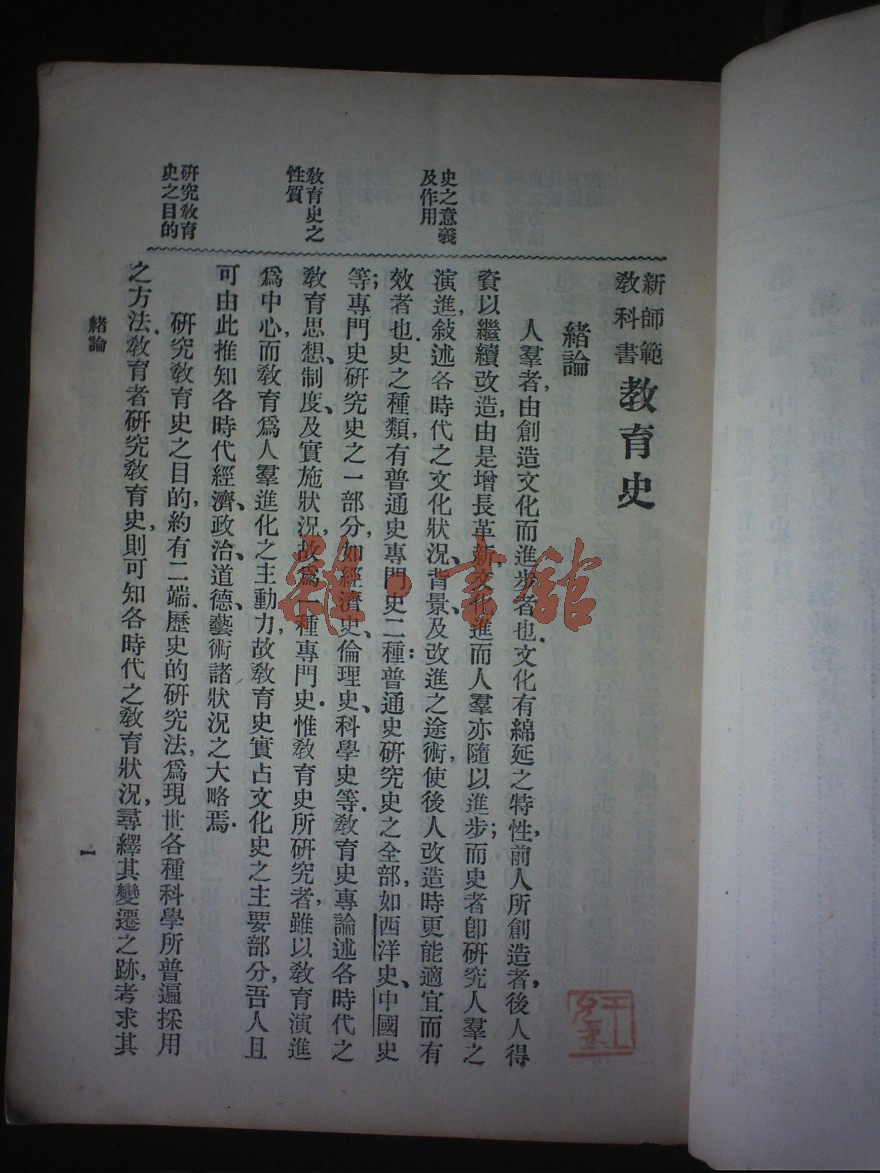 新師範
教科書
教育史
緒論
人羣者,由創造文化而進步者也.文化有綿延之特性,前人所創造者,後人得
資以繼續改造,由是增長革新,文化進而人羣亦隨以進步;而史者卽硏究人羣之
演進,敍述各時代之文化狀況、背景、及改進之途術,使後人改造時更能適宜而有
效者也.史之種類,有普通史專門史二種:普通史硏究史之全部,如西洋史、中國史
等;專門史硏究史之一部分,如經濟史、倫理史、科學史等.敎育史專論述各時代之
敎育思想、制度、及實施狀況,故爲一種專門史.惟敎育史所硏究者,雖以敎育演進
爲中心,而敎育爲人羣進化之主動力,故敎育史實占文化史之主要部分,吾人且
可由此推知各時代經濟、政治、道德、藝術諸狀況之大略焉.
硏究敎育史之目的,約有二端.歷史的硏究法,爲現世各種科學所普遍採用
之方法.敎育者硏究敎育史,則可知各時代之敎育狀況,尋繹其變遷之跡,考求其
史之意義
及作用
敎育史之
性質
硏究敎育
史之目的
緒論
1
雜·書館